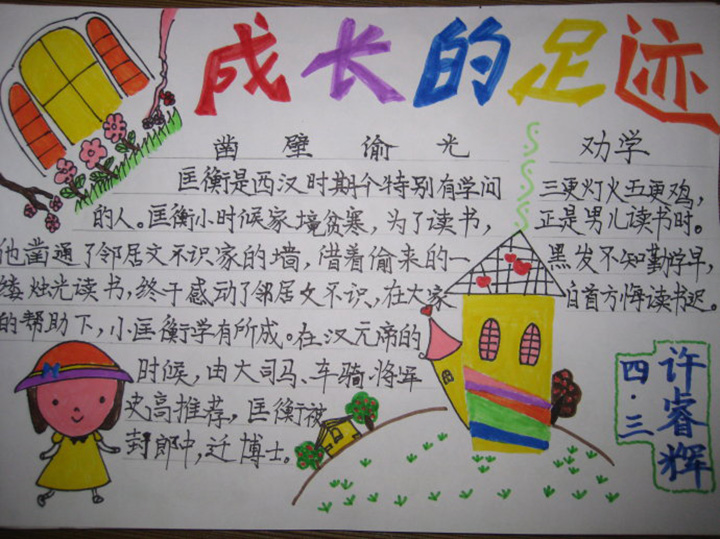 成长的足迹
凿壁偷光
匡衡是西汉时期个特别有学问
的人。匡衡小时候家境贫寒，为了读书，
他凿通了邻居文不识家的墙，借着偷来的一
缕烛光读书，终于感动了邻居文不识，在大家
的帮助下，小匡衡学有所成。在汉元帝的
时候，由大司马、车骑将军
史高推荐，匡衡被
封郎中，迁博士。
劝学
三更灯火五更鸡，
正是男儿读书时。
黑发不知勤学早，
白首方悔读书迟。
四·三
许睿辉